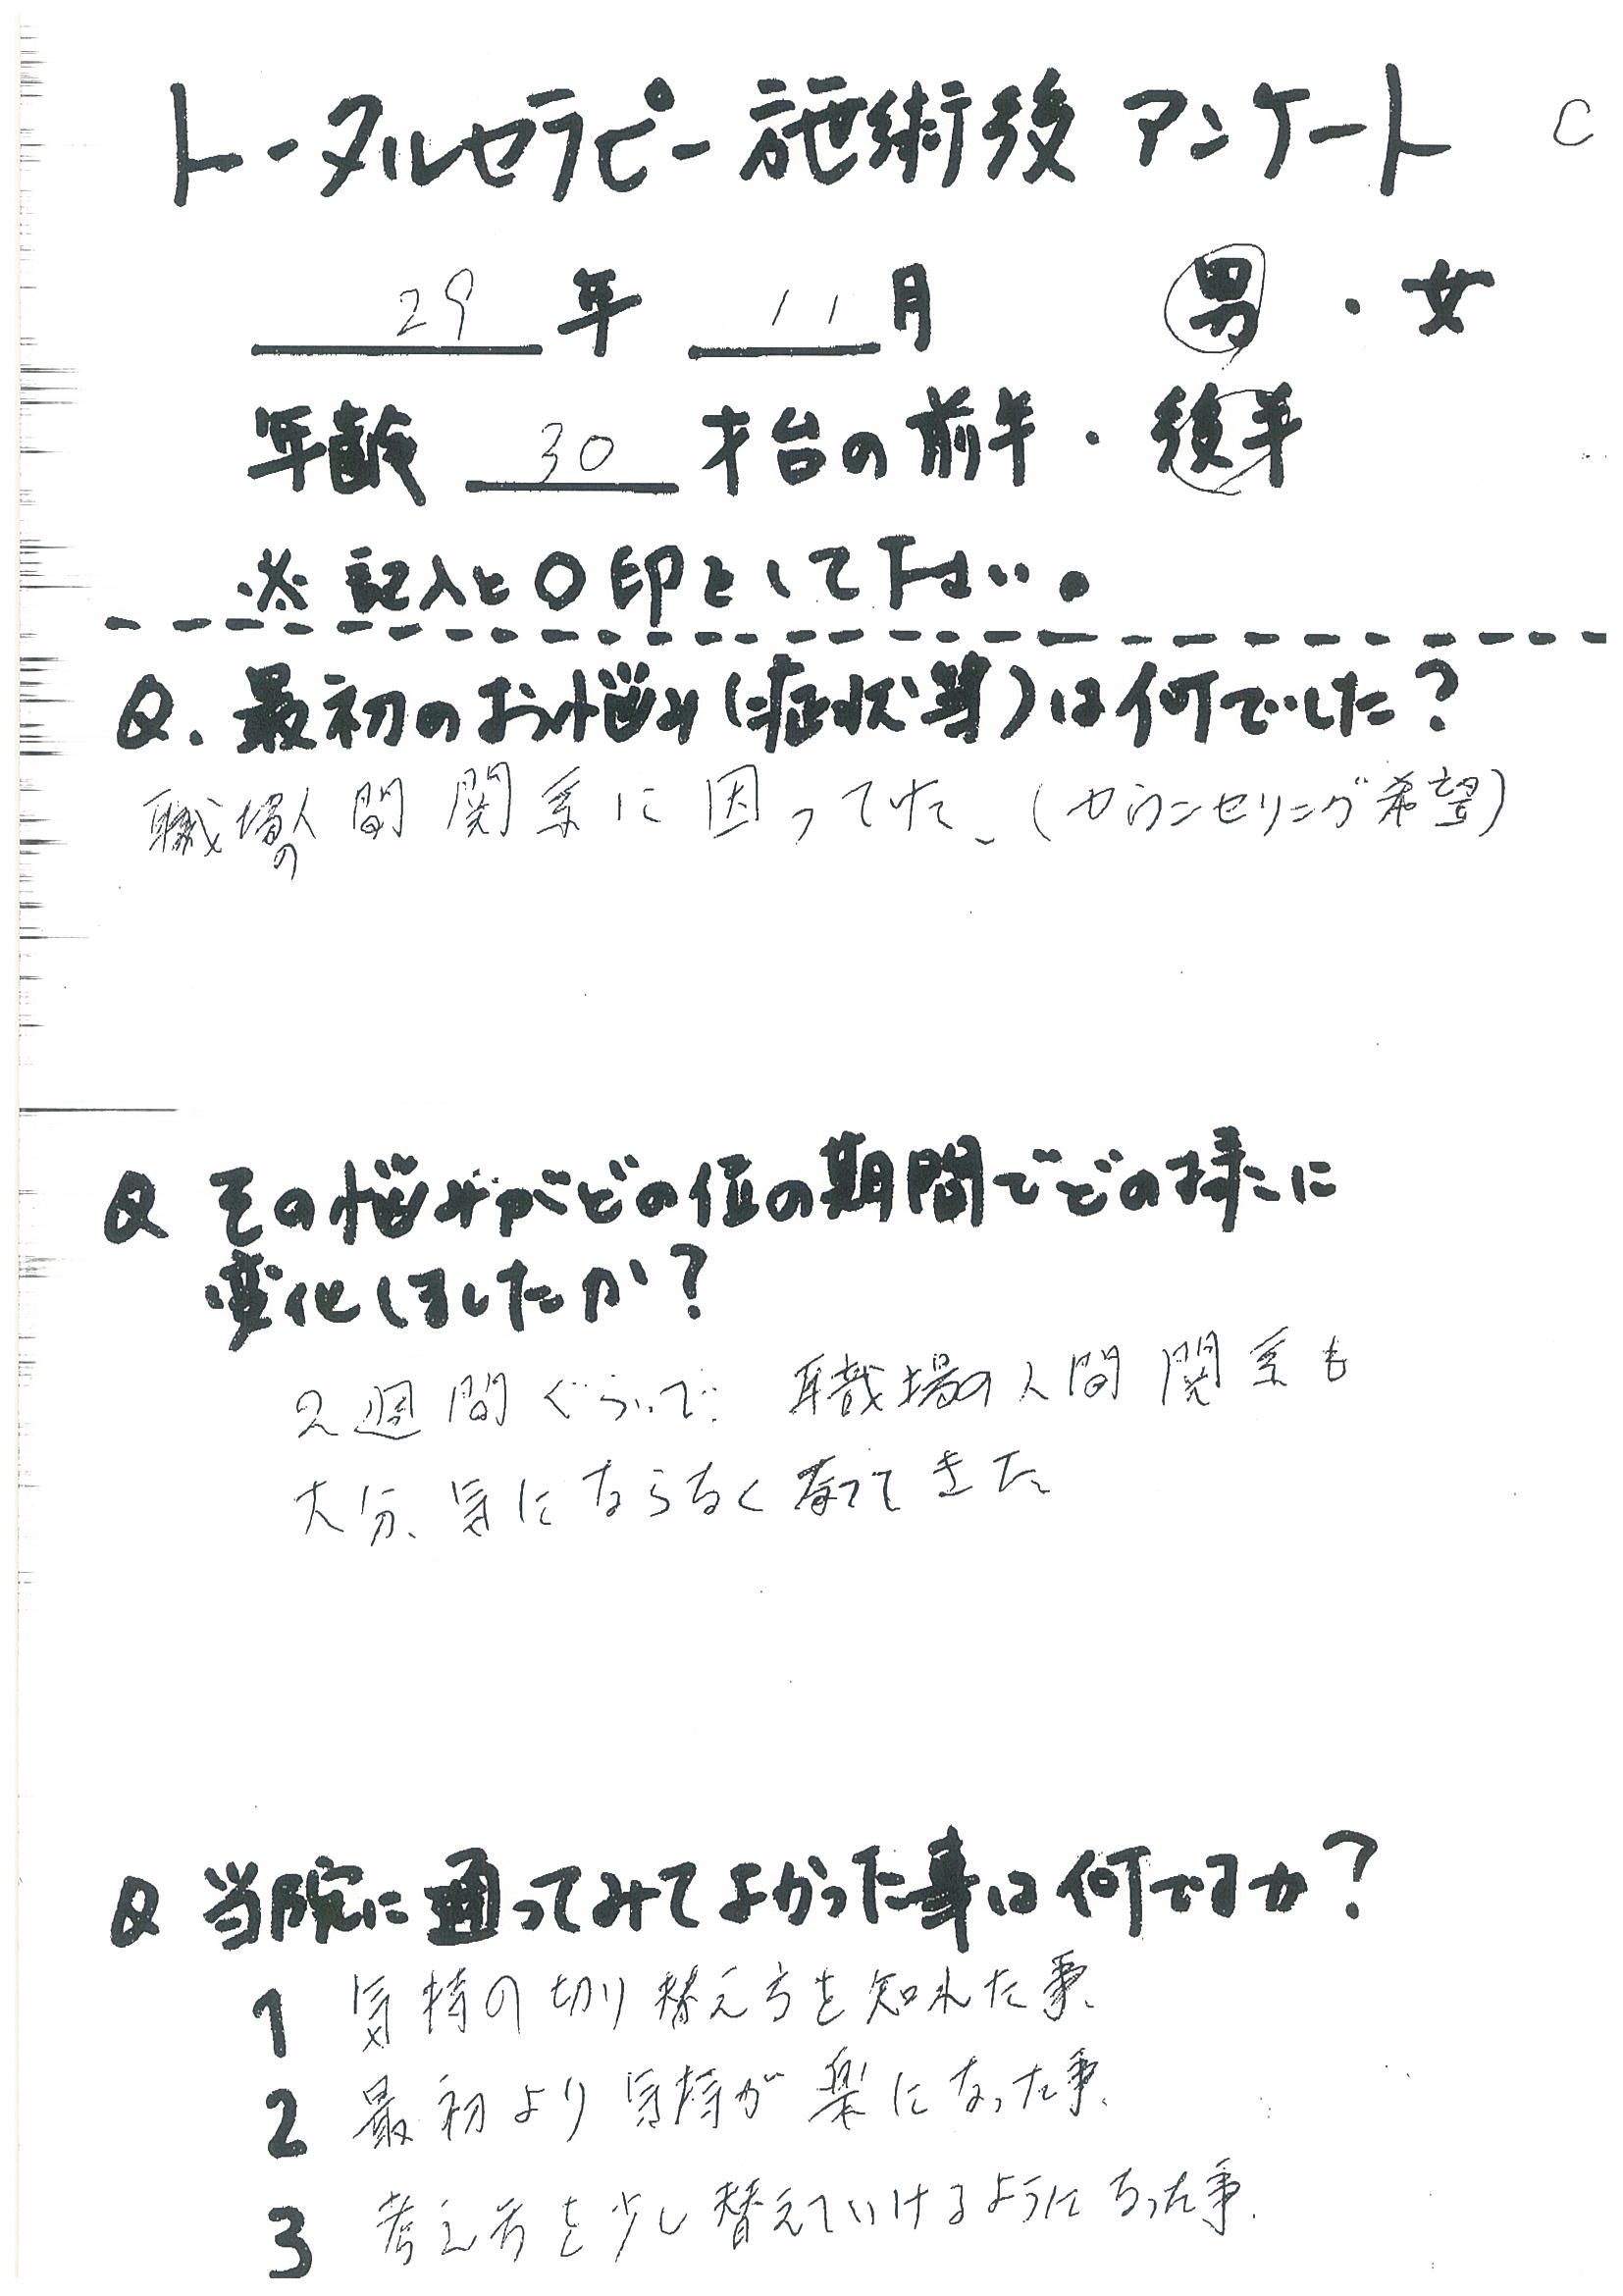 トータルセラピー施術後アンケート C
29年 11月 男・女
年齢 30 才台の前半・後半
※記入と〇印をして下さい。
Q.最初のお悩み(症状等)は何でした?
職場の人間関係に困っていた、(カウンセリング希望)
Q その悩みがどの位の期間でどの様に
変化しましたか?
2週間ぐらいで、職場の人間関係も
大分、気にならなくなってきた
Q 当院に通ってみてよかった事は何ですか?
1 気持の切り替え方を知れた事、
2 最初より気持が楽になった事、
3 考え方を少し替えていけるようになった事、